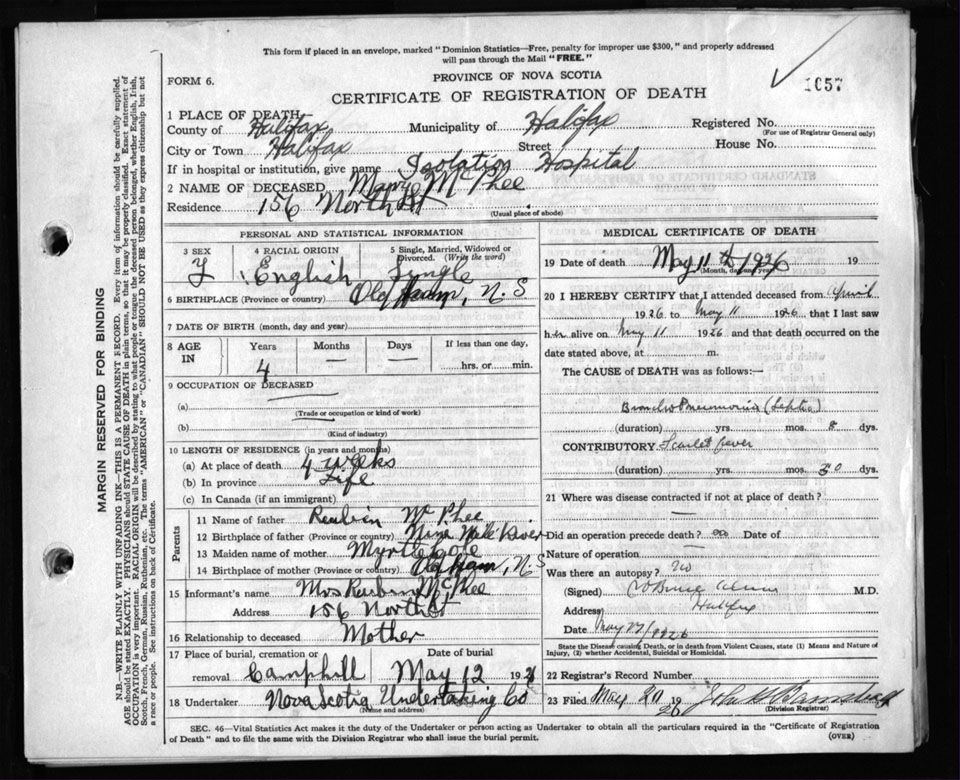 This form if placed in an envelope, marked "Dominion Statistics—Free, penalty for improper use $300," and properly addressed
will pass through the Mail "FREE."
FORM 6.
PROVINCE OF NOVA SCOTIA
1657
CERTIFICATE OF REGISTRATION OF DEATH
1 PLACE OF DEATH
County of Halifax Municipality of Halifax Registered No.
(For use of Registrar General only)
City or Town Halifax Street House No.
If in hospital or institution, give name Isolation Hospital
2 NAME OF DECEASED Mary McPhee
Residence 156 North St
(Usual place of abode)
PERSONAL AND STATISTICAL INFORMATION
3 SEX 4 RACIAL ORIGIN 5 Single, Married, Widowed or Divorced. (Write the word)
F English Single
6 BIRTHPLACE (Province or country) Old Ham, N.S
7 DATE OF BIRTH (month, day and year)
8 AGE IN Years Months Days If less than one day,
4 — — hrs. or min.
9 OCCUPATION OF DECEASED
(a)
(Trade or occupation or kind of work)
(b)
(Kind of industry)
10 LENGTH OF RESIDENCE (in years and months)
(a) At place of death 4 weeks
(b) In province Life
(c) In Canada (if an immigrant)
Parents
11 Name of father Reubin McPhee
12 Birthplace of father (Province or country) Nine Mile River
13 Maiden name of mother Myrtle
14 Birthplace of mother (Province or country) Oldham, N.S
15 Informant's name Mrs Reubin McPhee
Address 156 North St
16 Relationship to deceased Mother
17 Place of burial, cremation or removal Date of burial
Camphill May 12 1926
18 Undertaker Nova Scotia Undertaking Co
(Name and address)
MEDICAL CERTIFICATE OF DEATH
19 Date of death May 11th 1926 19
(Month, day and year)
20 I HEREBY CERTIFY that I attended deceased from April
1926 to May 11 1926 that I last saw
her alive on May 11 1926 and that death occurred on the
date stated above, at m.
The CAUSE of DEATH was as follows:—
Broncho Pneumonia (Septic)
(duration) yrs. mos. 8 dys.
CONTRIBUTORY Scarlet fever
(duration) yrs. mos. 30 dys.
21 Where was disease contracted if not at place of death?
—
Did an operation precede death? no Date of
Nature of operation —
Was there an autopsy? No
(Signed) M.D.
Address Halifax
Date May 27/1926
State the Disease causing Death, or in death from Violent Causes, state (1) Means and Nature of
Injury, (2) whether Accidental, Suicidal or Homicidal.
22 Registrar's Record Number
23 Filed May 20 1926 John
(Division Registrar)
SEC. 46—Vital Statistics Act makes it the duty of the Undertaker or person acting as Undertaker to obtain all the particulars required in the "Certificate of Registration
of Death" and to file the same with the Division Registrar who shall issue the burial permit. (OVER)
MARGIN RESERVED FOR BINDING
N.B.—WRITE PLAINLY WITH UNFADING INK—THIS IS A PERMANENT RECORD. Every item of information should be carefully supplied.
AGE should be stated EXACTLY. PHYSICIANS should STATE CAUSE OF DEATH in plain terms, so that it may be properly classified. Exact statement of
OCCUPATION is very important. RACIAL ORIGIN will be described by stating to what people or tongue the deceased person belonged, whether English, Irish,
Scotch, French, German, Russian, Ruthenian, etc. The terms "AMERICAN" or "CANADIAN" SHOULD NOT BE USED as they express citizenship but not
a race or people. See instructions on back of Certificate.